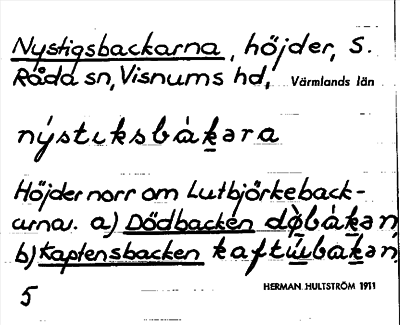 Nystigsbackarna, höjder, S.
Råda sn, Visnums hd, Värmlands län
nýstɩksbàk̲əra
Höjder norr om Lutbjörkeback-
arna. a) Dödbacken dø̀bàk̲ən
b) Kaptensbacken kaftúu̲bàk̲ən
5 HERMAN HULTSTRÖM 1911